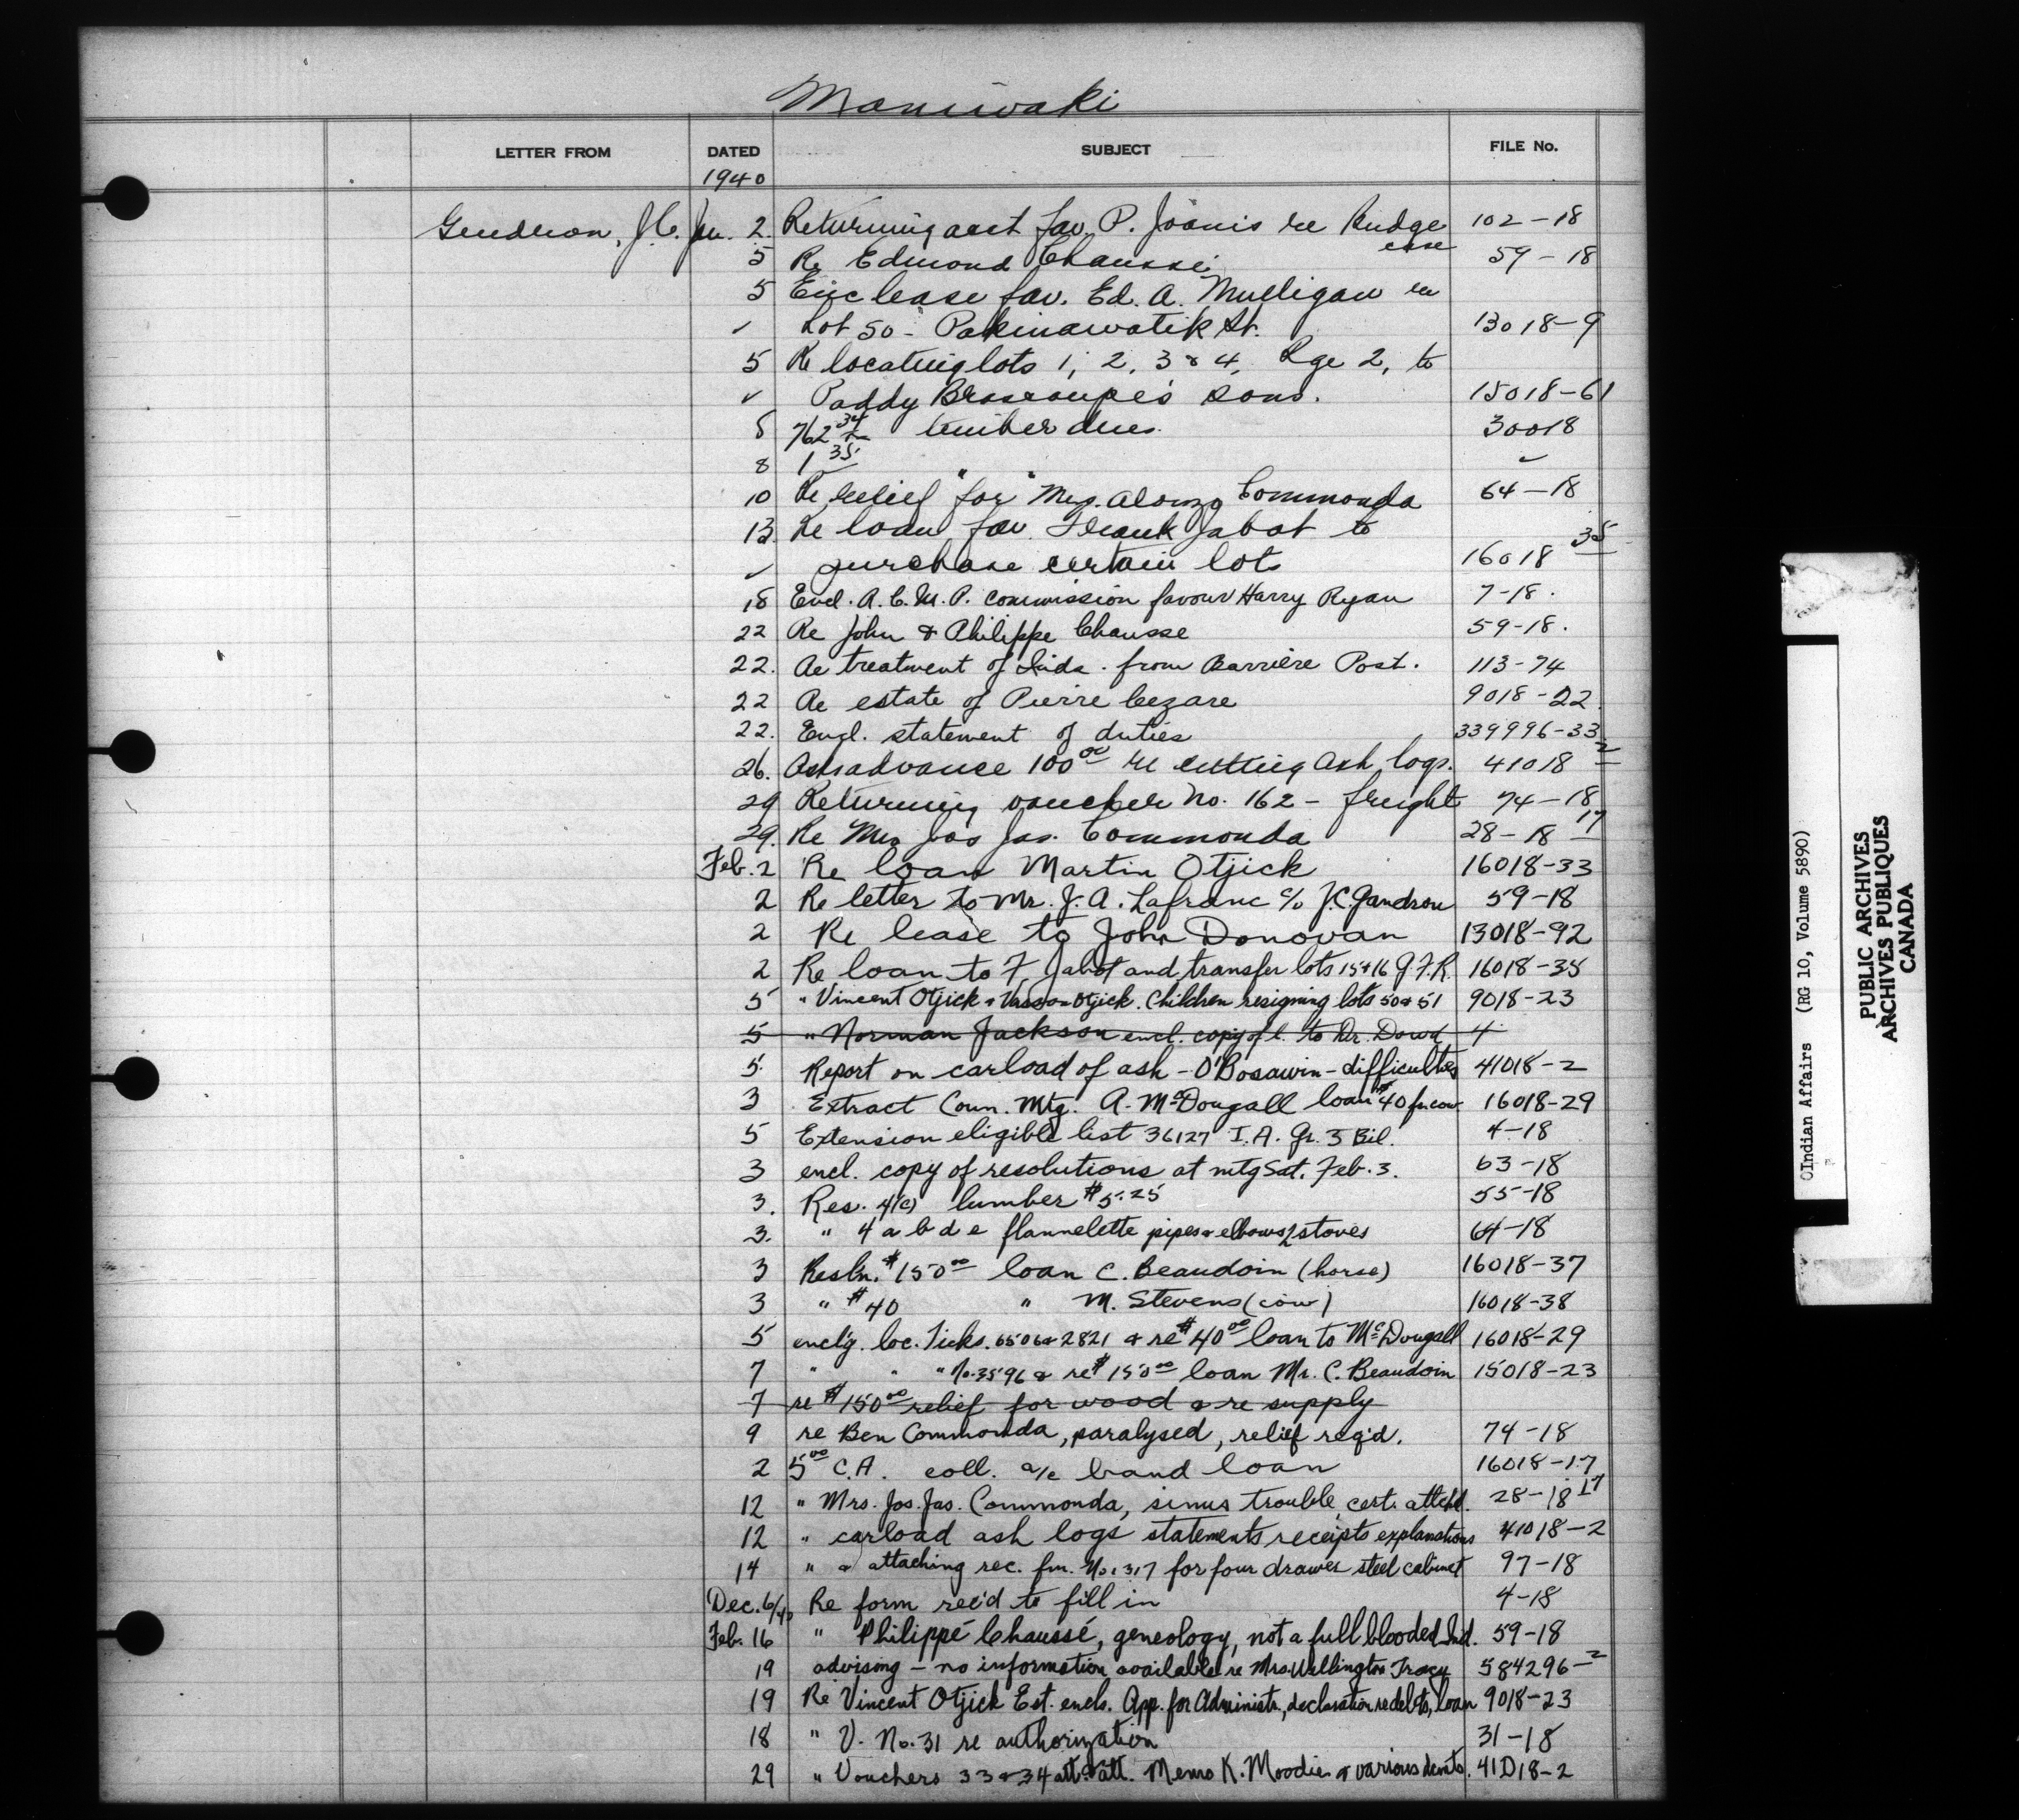 Maniwaki
LETTER FROM DATED SUBJECT FILE No.
1940
Gendron, J.C. Jan. 2 Returning acct fav. P. Joanis re Rudge case 102-18
5 Re Edmond Chaussé 59-18
5 Enc lease fav. Ed. A. Mulligan re
✓ Lot 50 - Pakinawatik St. 13018-9
5 Re locating lots 1, 2, 3 & 4, Rge 2, to
✓ Paddy Brascoupe's sons. 15018-61
8 762 34 timber dues 30018
8 1 35 " " ✓
10 Re relief for Mrs. Alonzo Commonda 64-18
13 Re loan fav. Frank Jabot to
✓ purchase certain lots 16018 35
18 Encl. R.C.M.P. commission favour Harry Ryan 7-18.
22 Re John & Philippe Chausse 59-18.
22. Re treatment of Inds. from Barrière Post. 113-74
22 Re estate of Pierre Cezare 9018-22
22. Encl. statement of duties 339996-33
26. Asks advance 100 00 re cutting ash logs. 41018 2
29 Returning voucher No. 162 - freight 74-18
29. Re Mrs Jos Jas. Commonda 28-18 17
Feb. 2 Re loan Martin Otjick 16018-33
2 Re letter to Mr. J. A. Lafranc c/o J.C. Gandron 59-18
2 Re lease to John Donovan 13018-92
2 Re loan to F Jabot and transfer lots 15+16 G.F.R. 16018-35
5 " Vincent Otjick & Otjick. Children resigning lots 50 & 51 9018-23
5 " Norman Jackson encl. copy of l. to Dr. Dowd 4
5. Report on carload of ash - O'Bosawin - difficulties 41018-2
3 Extract Coun. Mtg. A. McDougall loan $40 for cow 16018-29
5 Extension eligible list 36127 I.A. Gr. 3 Bil. 4-18
3 encl. copy of resolutions at mtg Sat. Feb. 3. 63-18
3. Res. 4(c) lumber $5.25 55-18
3. " 4 a b d e flannelette pipes & elbows 2 stoves 64-18
3 Resln. $150 00 loan C. Beaudoin (horse) 16018-37
3 " $40 " M. Stevens (cow) 16018-38
5 encl'g. loc. Ticks. 6506 & 2821 & re $40 00 loan to McDougall 16018-29
7 " " " No. 3596 & re $150 00 loan Mr. C. Beaudoin 15018-23
7 re $150 00 relief for wood & re supply
9 re Ben Commonda, paralysed, relief req'd. 74-18
2 5 00 C.A. coll. a/c band loan 16018-17
12 " Mrs. Jos. Jas. Commonda, sinus trouble, cert. attchd. 28-18 17
12 " carload ash logs statements receipts explanations 41018-2
14 " & attaching rec. fm. No. 317 for four drawer steel cabinet 97-18
Dec. 6/40 Re form rec'd to fill in 4-18
Feb. 16 " Philippé Chaussé, geneology, not a full blooded Ind. 59-18
19 advising - no information available re Mrs. Wellington Tracy 584296-2
19 Re Vincent Otjick Est. encls. App. for Administr., declaration re debts, loan 9018-23
18 " V. No. 31 re authorization 31-18
29 " Vouchers 33 & 34 att. Memo K. Moodie & various 41018-2
Indian Affairs (RG 10, Volume 5890)
PUBLIC ARCHIVES
ARCHIVES PUBLIQUES
CANADA